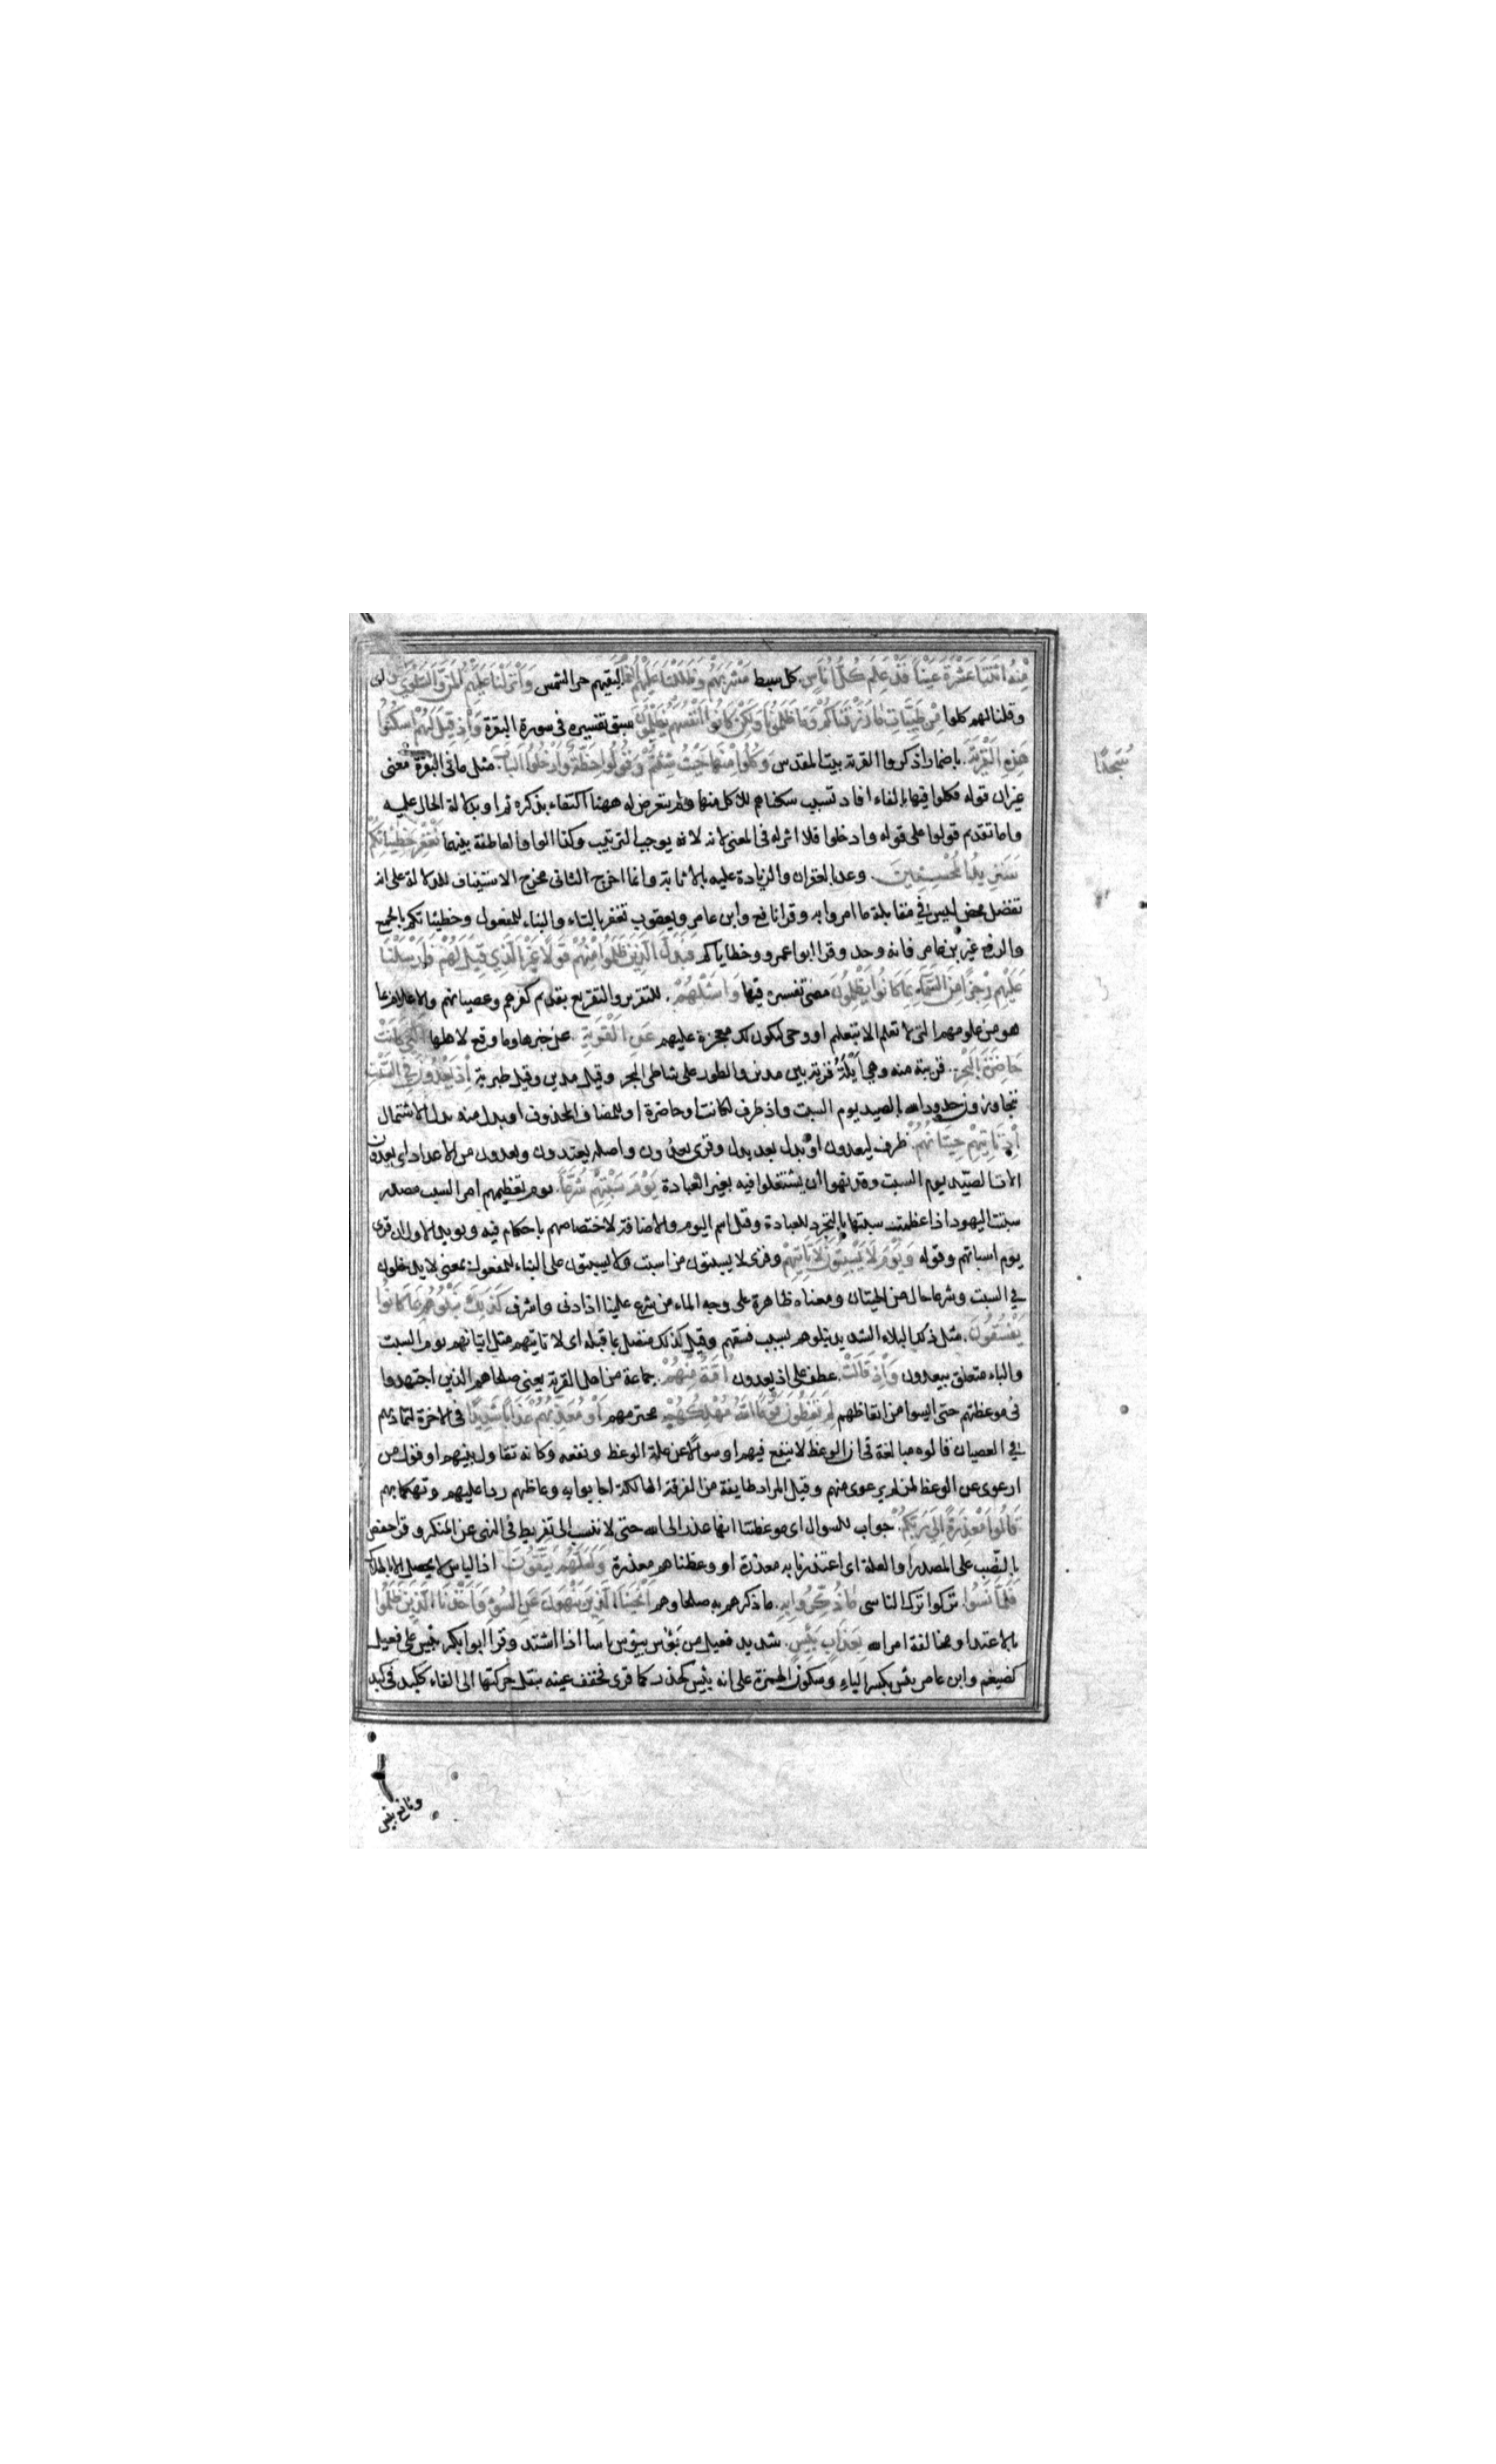 مِنْهُ اثْنَتَا عَشْرَةَ عَيْنًا قَدْ عَلِمَ كُلُّ أُنَاسٍ. كل سبط مَشْرَبَهُمْ وَظَلَّلْنَا عَلَيْهِمُ الْغَمَامَ ليقيهم حر الشمس وَأَنْزَلْنَا عَلَيْهِمُ الْمَنَّ وَالسَّلْوَى
وقلنا لهم كلوا مِنْ طَيِّبَاتِ مَا رَزَقْنَاكُمْ وَمَا ظَلَمُونَا وَلَكِنْ كَانُوا أَنْفُسَهُمْ يَظْلِمُونَ سبق تفسيره في سورة البقرة وَإِذْ قِيلَ لَهُمُ اسْكُنُوا
هَذِهِ الْقَرْيَةَ. باضمار اذكر والقرية بيت المقدس وَكُلُوا مِنْهَا حَيْثُ شِئْتُمْ وَقُولُوا حِطَّةٌ وَادْخُلُوا الْبَابَ. مثل ما في البقرة معنى
سُجَّدًا
غير ان قوله فكلوا فيها بالفاء افاد تسبب سكناهم للاكل منها ولم يتعرض له ههنا اكتفاء بذكره ثم او بدلالة الحال عليه
واما تقديم قولوا على قوله وادخلوا فلا اثر له في المعنى لانه لا يوجب الترتيب وكذا الواو العاطفة بينهما نَغْفِرْ لَكُمْ خَطِيئَاتِكُمْ
سَنَزِيدُ الْمُحْسِنِينَ. وعد بالغفران والزيادة عليه بالاثابة وانما اخرج الثاني مخرج الاستيناف للدلالة على انه
تفضل محض ليس في مقابلة ما امروا به وقرا نافع وابن عامر ويعقوب تغفر بالتاء والبناء للمفعول وخطيئاتكم بالجمع
والرفع غير بن عامر فانه وحد وقرا ابو عمرو خطاياكم فَبَدَّلَ الَّذِينَ ظَلَمُوا مِنْهُمْ قَوْلًا غَيْرَ الَّذِي قِيلَ لَهُمْ فَأَرْسَلْنَا
عَلَيْهِمْ رِجْزًا مِنَ السَّمَاءِ بِمَا كَانُوا يَظْلِمُونَ مضى تفسيره فيها وَاسْئَلْهُمْ. للتقرير والتقريع بقديم كفرهم وعصيانهم والاعلام بما
هو من علومهم التي لا تعلم الا بتعليم او وحي ليكون لك معجزة عليهم عَنِ الْقَرْيَةِ عن خبرها وما وقع لاهلها الَّتِي كَانَتْ
حَاضِرَةَ الْبَحْرِ. قريبة منه وهي أَيْلَةُ قرية بين مدين والطور على شاطئ البحر وقيل مدين وقيل طبرية إِذْ يَعْدُونَ فِي السَّبْتِ
يتجاوزون حدود الله بالصيد يوم السبت واذ ظرف لكانت او حاضرة او للمضاف المحذوف او بدل منه بدل الاشتمال
إِذْ تَأْتِيهِمْ حِيتَانُهُمْ. ظرف ليعدون او بدل بعد بدل وقرئ يعدون واصله يعتدون ويعدون من الاعداد اى يعدون
الات الصيد يوم السبت وقد نهوا ان يشتغلوا فيه بغير العبادة يَوْمَ سَبْتِهِمْ شُرَّعًا. يوم تعظيمهم امر السبت مصدر
سبتت اليهود اذا عظمت سبتها بالتجرد للعبادة وقيل اسم اليوم والاضافة لاختصاصهم باحكام فيه ويؤيد الاول ان قرئ
يوم اسباتهم وقوله وَيَوْمَ لَا يَسْبِتُونَ لَا تَأْتِيهِمْ وقرئ لا يسبتون من اسبت ولا يسبتون على البناء للمفعول بمعنى لا يدخلون
في السبت وشرعا حال من الحيتان ومعناه ظاهرة على وجه الماء من شرع علينا اذا دنى واشرف كَذَلِكَ نَبْلُوهُمْ بِمَا كَانُوا
يَفْسُقُونَ. مثل ذلك البلاء الشديد نبلوهم بسبب فسقهم وقيل كذلك متصل بما قبله اى لا تاتيهم مثل اتيانهم يوم السبت
والباء متعلق بيعدون وَإِذْ قَالَتْ. عطف على اذ يعدون أُمَّةٌ مِنْهُمْ. جماعة من اهل القرية يعنى صلحاهم الذين اجتهدوا
في موعظتهم حتى ايسوا من اتعاظهم لِمَ تَعِظُونَ قَوْمًا اللَّهُ مُهْلِكُهُمْ مخترمهم أَوْ مُعَذِّبُهُمْ عَذَابًا شَدِيدًا في الاخرة لتماديهم
في العصيان قالوه مبالغة في ان الوعظ لا ينفع فيهم او سوالا عن علة الوعظ ونفعه وكانه تقاول بينهم او قول من
ارعوى عن الوعظ لمن لم يرعوى منهم وقيل المراد طايفة من الفرقة الهالكة اجابوا به وعاظهم ردا عليهم وتهكما بهم
قَالُوا مَعْذِرَةً إِلَى رَبِّكُمْ. جواب للسوال اى موعظتنا انها عذر الى الله حتى لا ننسب الى تفريط في النهى عن المنكر وقرا حفص
بالنصب على المصدر او العلة اى اعتذرنا به معذرة او وعظناهم معذرة وَلَعَلَّهُمْ يَتَّقُونَ اذ الياس لا يحصل الا بالهلاك
فَلَمَّا نَسُوا. تركوا ترك الناسى مَا ذُكِّرُوا بِهِ. ما ذكرهم به صلحاوهم أَنْجَيْنَا الَّذِينَ يَنْهَوْنَ عَنِ السُّوءِ وَأَخَذْنَا الَّذِينَ ظَلَمُوا
بالاعتدا ومخالفة امر الله بِعَذَابٍ بَئِيسٍ. شديد فعيل من بؤس يبؤس باسا اذا اشتد وقرا ابو بكر بيئس على فيعل
كضيغم وابن عامر بئس بكسر الباء وسكون الهمزة على انه بئس كحذر كما قرئ فخفف عينه بنقل حركتها الى الفاء ككبد في كبد
ونافع بيس